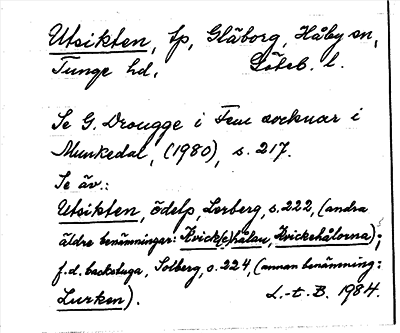 Utsikten, tp, Glåborg, Håby sn,
Tunge hd, Göteb. l.
Se G. Drougge i Fem socknar i
Munkedal, (1980), s. 217.
Se äv.:
Utsikten, ödetp, Lerberg, s. 222, (andra
äldre benämningar: Kvick(e)hålan, Kvickehålorna);
f.d. backstuga, Solberg, s. 224, (annan benämning:
Lurken). L.-t. B. 1984.